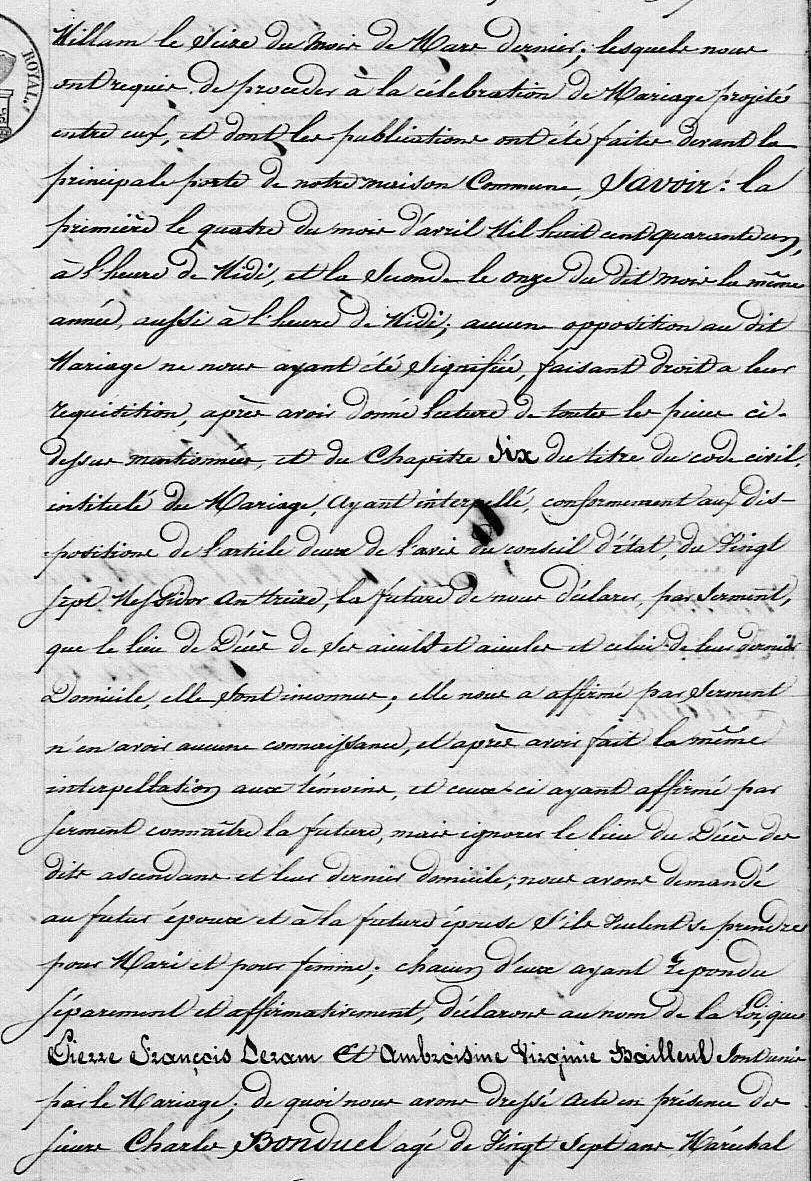 ROYAL.
Willam le Seize du mois de Mars dernier; lesquels nous
ont requis de procéder à la célébration de Mariage projeté
entre eux, et dont les publications ont été faites devant la
principale porte de notre maison Commune, Savoir: la
première le quatre du mois d'avril Mil huit cent quarante un,
à l'heure de Midi, et la Seconde le onze du dit mois la même
année, aussi à l'heure de Midi; aucune opposition au dit
Mariage ne nous ayant été Signifiée, faisant droit a leur
requisition, après avoir donné lecture de toutes les pièces ci-
dessus mentionnées, et du Chapitre Six du titre du code civil,
intitulé du Mariage, Ayant interpellé, conformément aux dis-
positions de l'article deux de l'avis du conseil d'état, du Vingt
Sept Messidor An treize, la future de nous déclarer, par Serment,
que le lieu de Décès de Ses aieuls et aieules et celui de leur dernier
Domicile, elle Sont inconnus; elle nous a affirmé par Serment
n'en avoir aucune connaissance, et après avoir fait la même
interpellation aux témoins, et ceux-ci ayant affirmé par
Serment connaître la future, mais ignorer le lieu du Décès des
dits ascendans et leur dernier domicile; nous avons demandé
au futur époux et à la future épouse S'ils Veulent se prendre
pour Mari et pour femme; chacun d'eux ayant répondu
Séparément et affirmativement, déclarons au nom de la Loi, que
Pierre François Leram Et Ambroisine Virginie Bailleul Sont unis
par le Mariage; de quoi nous avons dressé Acte en présence des
Sieurs Charles Bonduel agé de Vingt Sept ans Maréchal